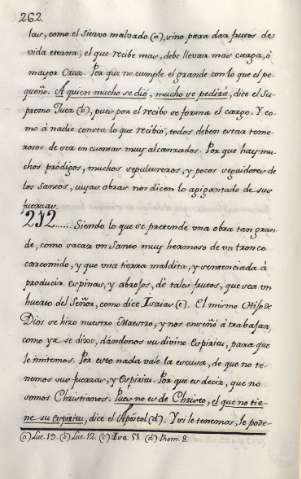 262
lar, como el siervo malvado (a), sino, para dar frutos de
vida eterna; el que recibe mas, debe llevar mas carga, ó
mayor Cruz. Por que no cumple el grande con lo que el pe-
queño. A quien mucho se dió, mucho se pedirá, dice el Su-
premo Juez (b), pues por el recibo se forma el cargo. Y co-
mo á nadie consta lo que recibió, todos deben estar teme-
rosos de ser en cuentas muy alcanzados. Por que hay mu-
chos pródigos, muchos sepultureros, y pocos seguidores de
los Santos, cuyas obras nos dicen lo agigantado de sus
fuerzas.
212..... Siendo lo que se pretende una obra tan gran-
de, como sacar un Santo muy hermoso de un tronco
carcomido, y que una tierra maldita, y sentenciada á
producir espinas, y abrojos, dé tales frutos, que sea un
huerto del Señor, como dice Isaias (c). El mismo Hijo de
Dios se hizo nuestro Maestro, y nos enseñó á trabajar,
como ya se dixo, dándonos su divino Espiritu, para que
le imitemos. Por esto nada vale la escusa, de que no te-
nemos sus fuerzas, y espiritu. Por que es decir, que no
somos Christianos. Pues no es de Christo, el que no tie-
ne su espiritu, dice el Apóstol (d). Y si le tenemos, le pode-
(a) Luc. 19. (b) Luc. 12. (c) Isa. 51. (d) Rom. 8.